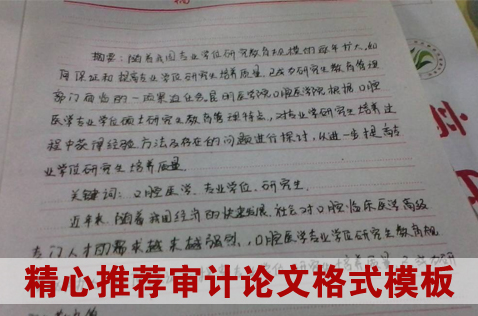 摘要：随着我国专业学位研究生教育规模的逐年扩大，如
何保证和提高专业学位研究生培养质量，已成为研究生教育管理
部门面临的一项紧迫任务。昆明医学院口腔医学院根据口腔
医学专业学位硕士研究生教育管理特点，对专业学研究生培养过
程中获得经验方法及存在的问题进行探讨，从进一步提高专
业学位研究生培养质量。
关键词：口腔医学、专业学位、研究生。
近年来，随着我国经济的快速发展，社会对口腔临床医学高级
专门人才的需求越来越强烈，口腔医学专业学位研究生教育规
精心推荐审计论文格式模板